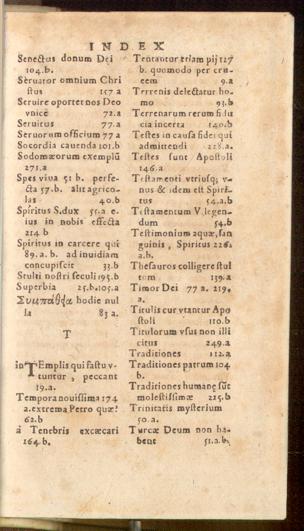 INDEX
Senectus donum Dei
104.b.
Seruator omnium Chri
stus 157 a
Seruire oportet nos Deo
vnice 72.a
Seruitus 77.a
Seruorum officium 77 a
Socordia cauenda 101.b
Sodomæorum exemplũ
271.a
Spes viua 51 b. perfe-
cta 57.b. alit agrico-
las 40.b
Spiritus S. dux 55.a e-
ius in nobis effecta
214 b
Spiritus in carcere qui
89.a.b. ad inuidiam
concupiscit 33.b
Stulti nostri seculi 195.b
Superbia 25.b.105.a
Συμπάθεια hodie nul
la 83 a.
T
in TEmplis qui fastu v-
tuntur, peccant
19.a.
Tempora nouissima 174
a. extrema Petro quæ?
62.b
à Tenebris excæcari
164.b.
Tentantur etiam pij 127
b. quomodo per cru-
cem 9.a
Terrenis delectatur ho-
mo 93.b
Terrenarum rerum fidu
cia incerta 140.b
Testes in causa fidei qui
admittendi 228.a.
Testes sunt Apostoli
146.a
Testamenti vtriusq; v-
nus & idem est Spiri-
tus 54.a.b
Testamentum V. legen-
dum 54.b
Testimonium aquæ, san
guinis, Spiritus 226.
a.b.
Thesauros colligere stul
tum 139.a
Timor Dei 77 a. 219.
a.
Titulis cur vtantur Apo
stoli 110.b
Titulorum vsus non illi
citus 249.a
Traditiones 112.a
Traditiones patrum 104
b.
Traditiones humanę sũt
molestissimæ 215.b
Trinitatis mysterium
50.a.
Turcæ Deum non ha-
bent 51.a.b.